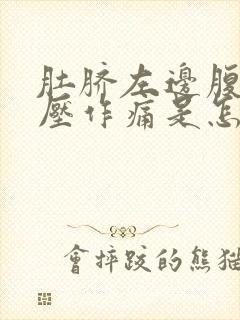 肚脐左邊腹
壓作痛是怎
會摔跤的熊猫